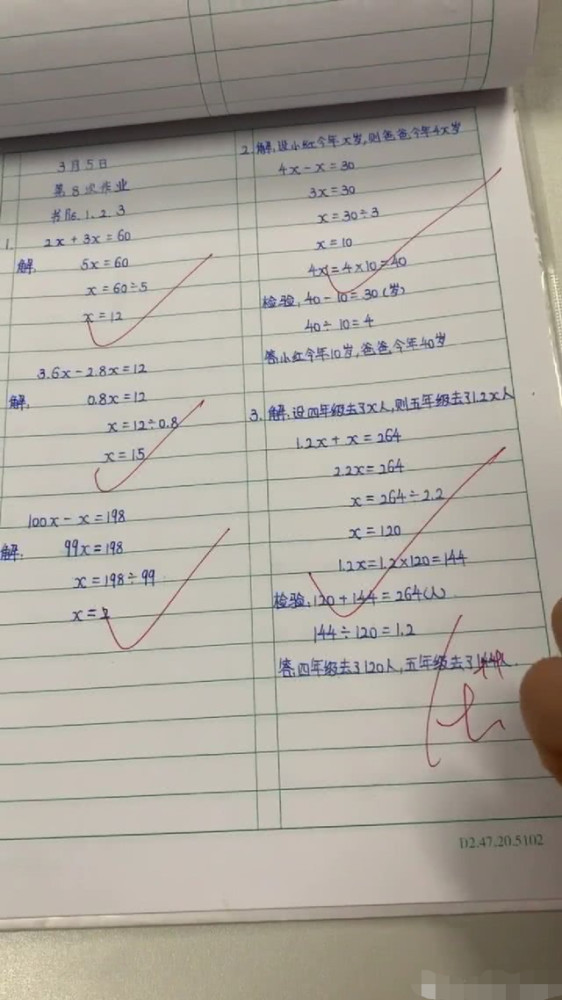 3月5日
第8次作业
书P6.1.2.3
1. 2x+3x=60
解. 5x=60
x=60÷5
x=12
3.6x-2.8x=12
解. 0.8x=12
x=12÷0.8
x=15
100x-x=198
解. 99x=198
x=198÷99
x=2
2. 解.设小红今年x岁,则爸爸今年4x岁
4x-x=30
3x=30
x=30÷3
x=10
4x=4×10=40
检验.40-10=30(岁)
40÷10=4
答.小红今年10岁,爸爸今年40岁
3. 解.设四年级去了x人,则五年级去了1.2x人
1.2x+x=264
2.2x=264
x=264÷2.2
x=120
1.2x=1.2×120=144
检验.120+144=264(人)
144÷120=1.2
答.四年级去了120人,五年级去了144人.
D2.47.20.5102